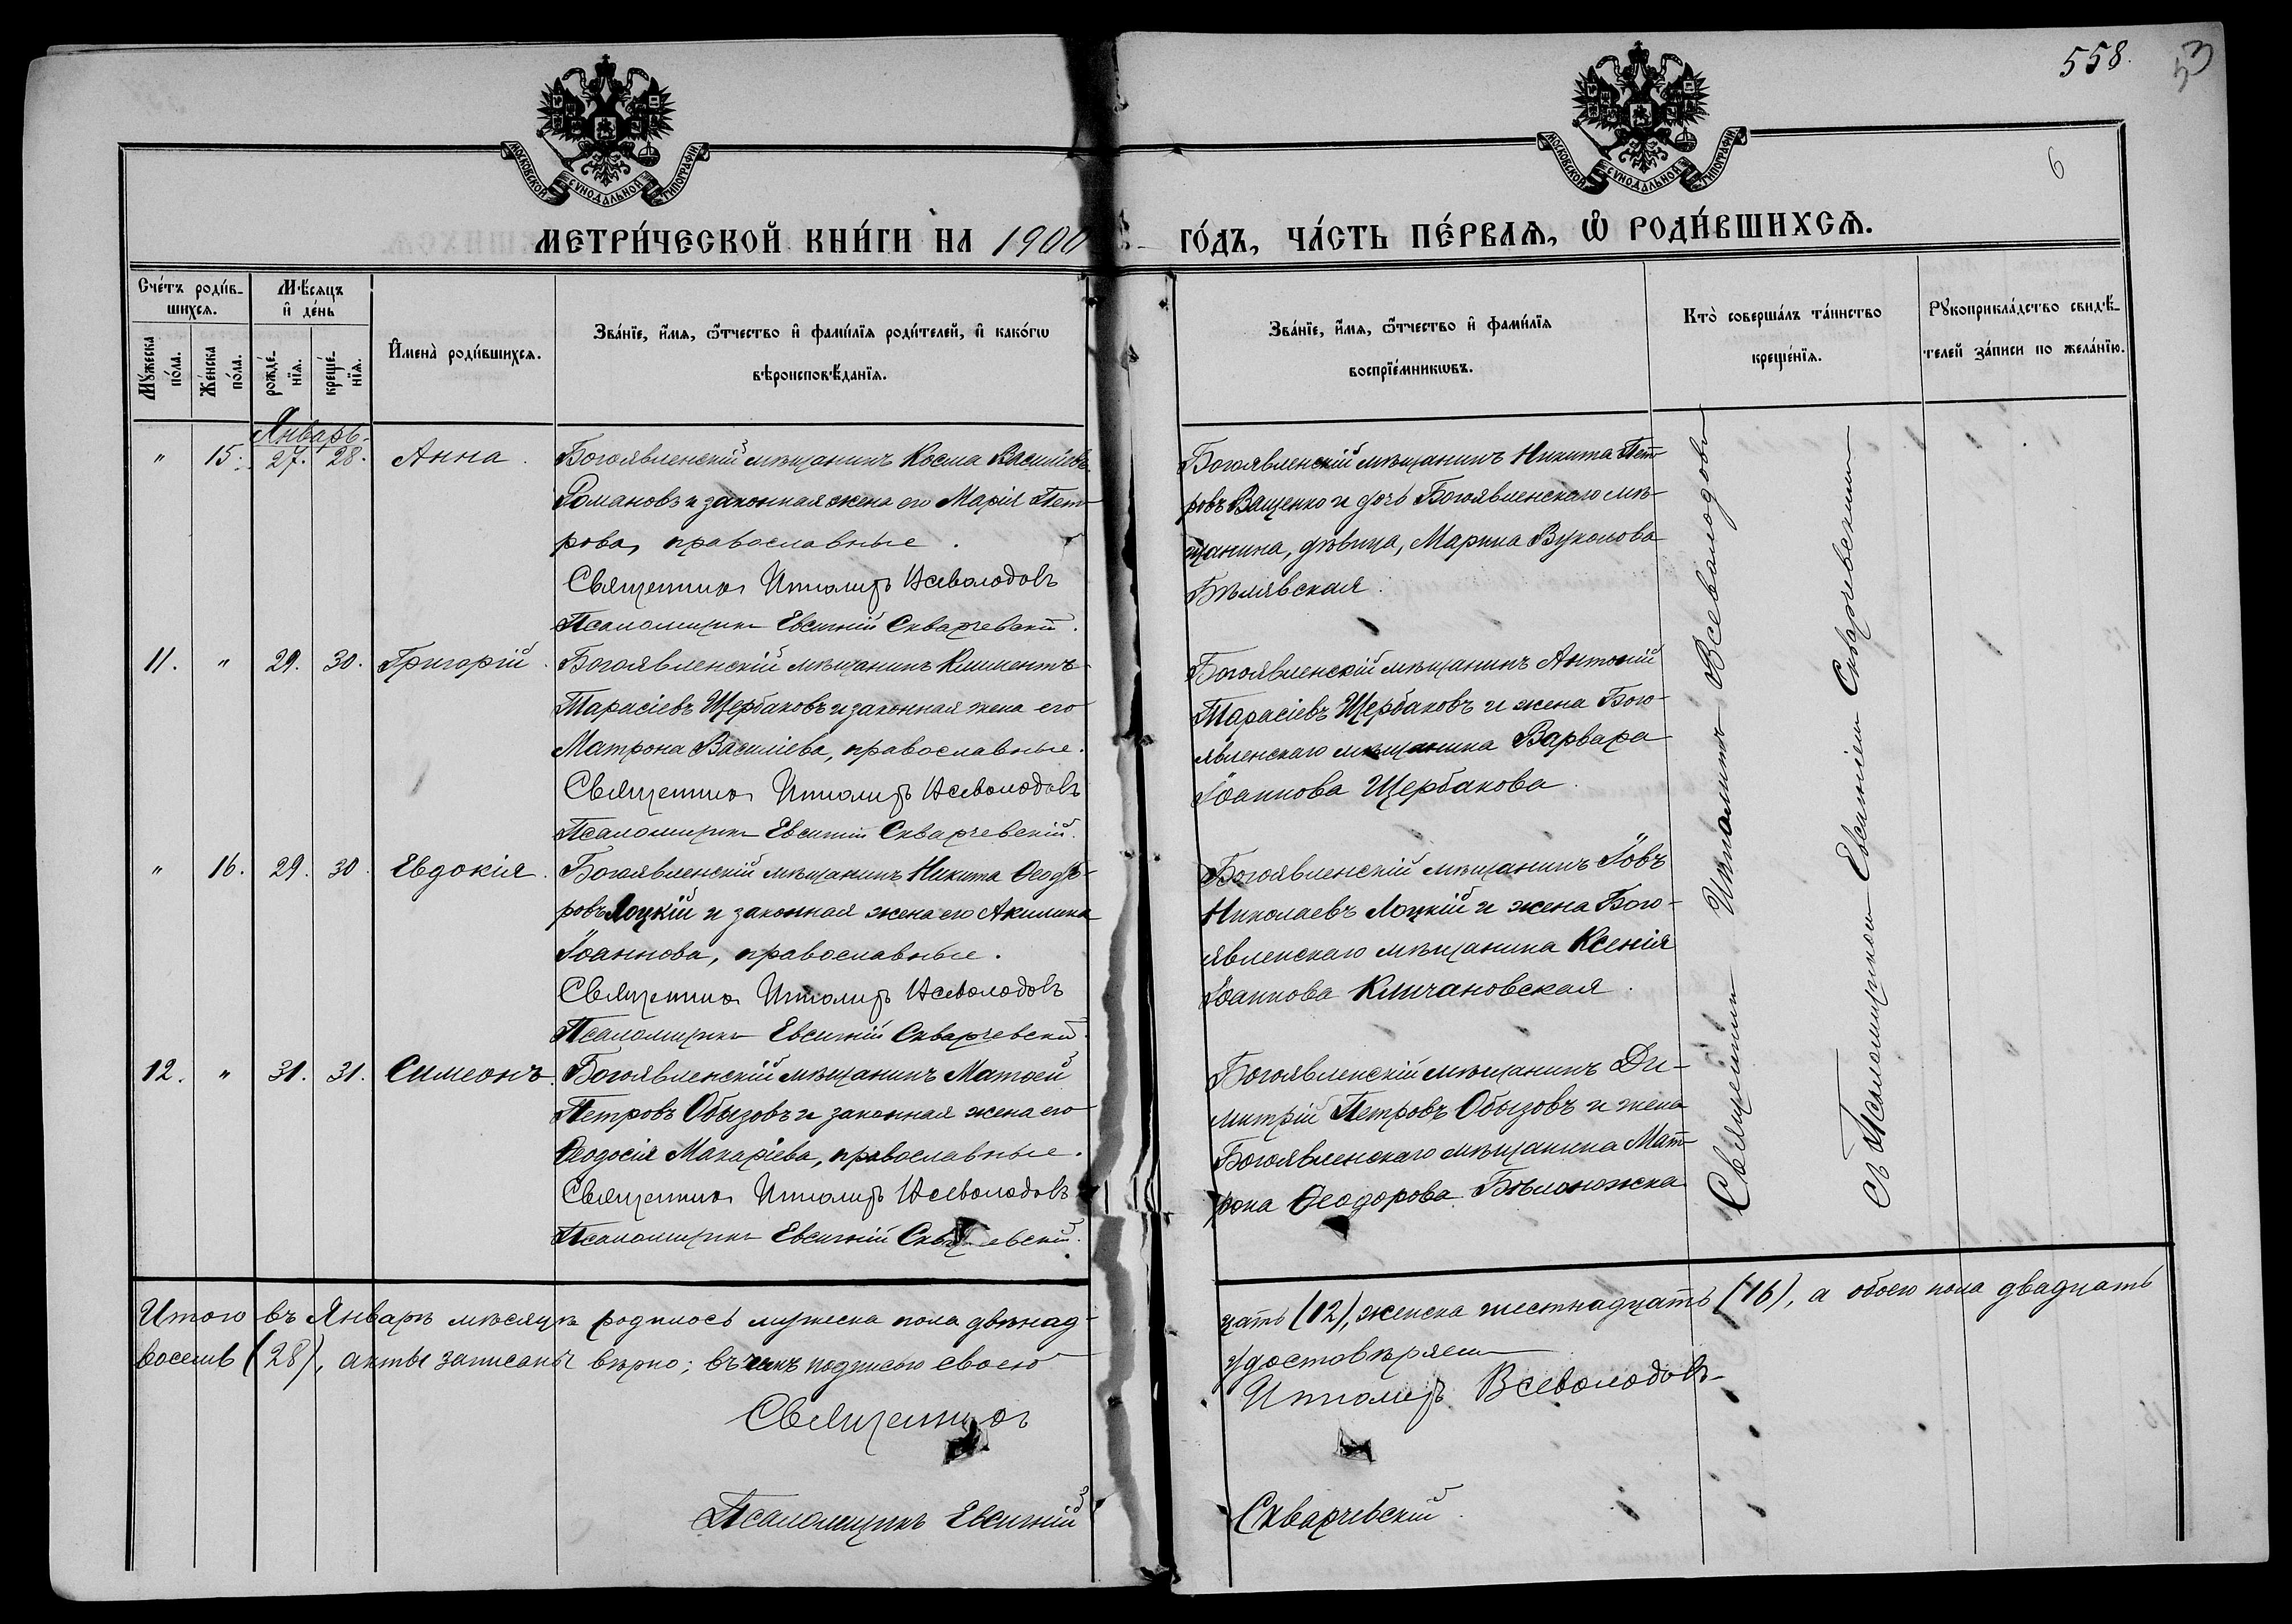 558.
53
6
МОСКОВСКОЙ СѴНОДАЛЬНОЙ ТИПОГРАФІИ
МОСКОВСКОЙ СѴНОДАЛЬНОЙ ТИПОГРАФІИ
МЕТРИ́ЧЕСКОЙ КНИ́ГИ НА 1900 ГО́ДЪ, ЧА́СТЬ ПЕ́РВАѦ, Ѡ҆ РОДИ́ВШИХСѦ.
Сче́тъ роди́в-
шихсѧ.
Мꙋ́жеска
по́ла.
Же́нска
по́ла.
Мѣ́сѧцъ
и҆ де́нь
рожде́-
нїѧ.
креще́-
нїѧ.
И҆мена̀ роди́вшихсѧ.
Зва́нїе, и҆́мѧ, ѻ҆́тчество и҆ фами́лїѧ роди́телей, и҆ како́гѡ
вѣроисповѣ́данїѧ.
Зва́нїе, и҆́мѧ, ѻ҆́тчество и҆ фами́лїѧ
воспрїе́мникѡвъ.
Кто̀ соверша́лъ та́инство
креще́нїѧ.
Рꙋкоприкла́дство свидѣ́-
телей за́писи по жела́нїю.
Январь.
" 15. 27. 28. Анна.
Богоявленскій мѣщанинъ Косма Василіевъ
Романовъ и законная жена его Марія Пет-
рова, православные.
Священникъ Ипполитъ Всеволодовъ
Псаломщикъ Евсигній Скварчевскій.
Богоявленскій мѣщанинъ Никита Пет-
ровъ Ващенко и дочь Богоявленскаго мѣ-
щанина, дѣвица, Марина Вуколова
Бѣлявская.
11. " 29. 30. Григорій.
Богоявленскій мѣщанинъ Климентъ
Тарасіевъ Щербаковъ и законная жена его
Матрона Василіева, православные.
Священникъ Ипполитъ Всеволодовъ
Псаломщикъ Евсигній Скварчевскій.
Богоявленскій мѣщанинъ Антоній
Тарасіевъ Щербаковъ и жена Бого-
явленскаго мѣщанина Варвара
Іоаннова Щербакова.
" 16. 29. 30. Евдокія.
Богоявленскій мѣщанинъ Никита Ѳеодо-
ровъ Лоцкій и законная жена его Акилина
Іоаннова, православные.
Священникъ Ипполитъ Всеволодовъ
Псаломщикъ Евсигній Скварчевскій.
Богоявленскій мѣщанинъ Іовъ
Николаевъ Лоцкій и жена Бого-
явленскаго мѣщанина Ксенія
Іоаннова Кличановская.
12. " 31. 31. Симеонъ.
Богоявленскій мѣщанинъ Матѳей
Петровъ Обызовъ и законная жена его
Ѳеодосія Макаріева, православные.
Священникъ Ипполитъ Всеволодовъ
Псаломщикъ Евсигній Скварчевскій.
Богоявленскій мѣщанинъ Ди-
митрій Петровъ Обызовъ и жена
Богоявленскаго мѣщанина Мат-
рона Ѳеодорова Бѣлоножка
Священникъ Ипполитъ Всеволодовъ
съ Псаломщикомъ Евсигніемъ Скварчевскимъ
Итого въ Январѣ мѣсяцѣ родилось мужеска пола двѣнад-
цать (12), женска шестнадцать (16), а обоего пола двадцать
восемь (28), акты записаны вѣрно; въ чемъ подписью своею
удостовѣряемъ
Священникъ Ипполитъ Всеволодовъ
Псаломщикъ Евсигній Скварчевскій.